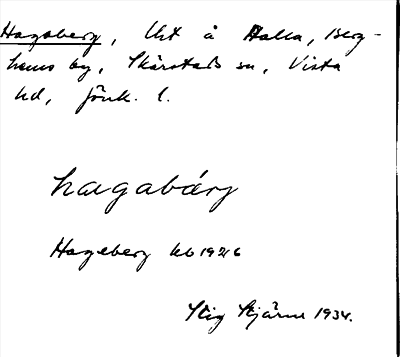 Hageberg, Uht å Halla, Berg-
hems by, Skärstads sn, Vista
hd, Jönk. l.
hagabärj
Hageberg kb 1926
Stig Stjärne 1934.